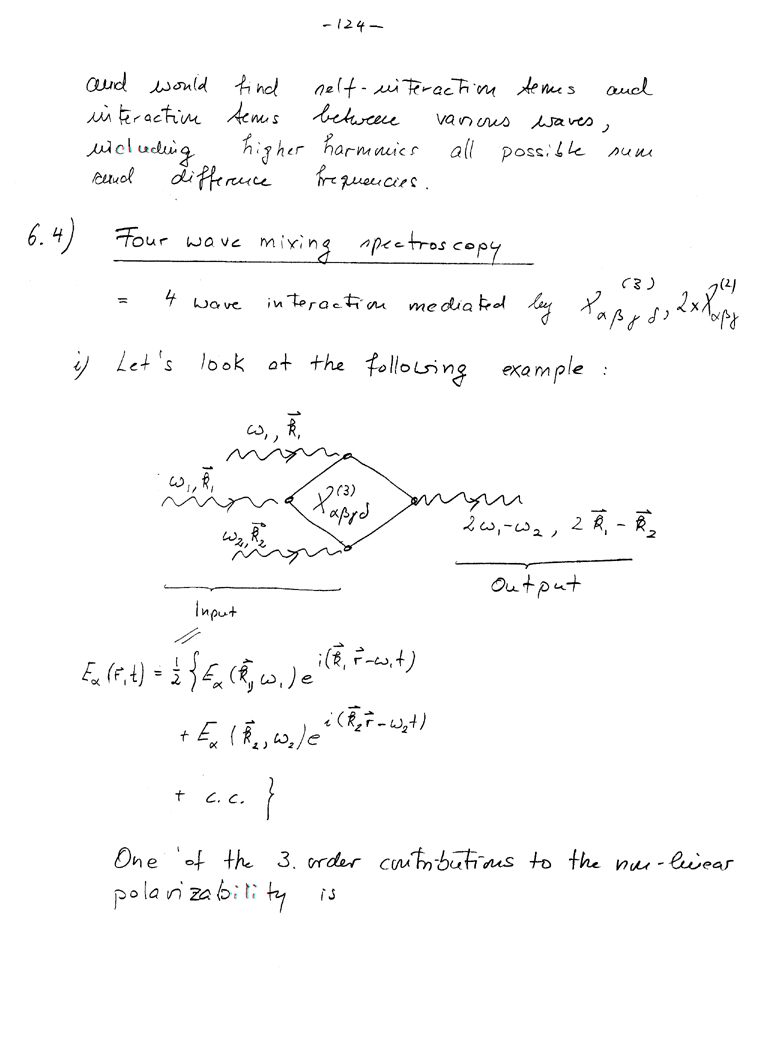 -124-
and would find self-interaction terms and
interaction terms between various waves,
including higher harmonics all possible sum
and difference frequencies.
6.4) Four wave mixing spectroscopy
= 4 wave interaction mediated by χ_{αβγδ}^{(3)}, 2×χ_{αβγ}^{(2)}
i) Let's look at the following example :
ω₁, k⃗₁
ω₁, k⃗₁
χ_{αβγδ}^{(3)}
ω₂, k⃗₂
2ω₁-ω₂, 2k⃗₁ - k⃗₂
Input
Output
E_α(r⃗,t) = ½ { E_α(k⃗₁, ω₁) e^{i(k⃗₁ r⃗ - ω₁t)}
+ E_α(k⃗₂, ω₂) e^{i(k⃗₂ r⃗ - ω₂t)}
+ c.c. }
One of the 3. order contributions to the non-linear
polarizability is